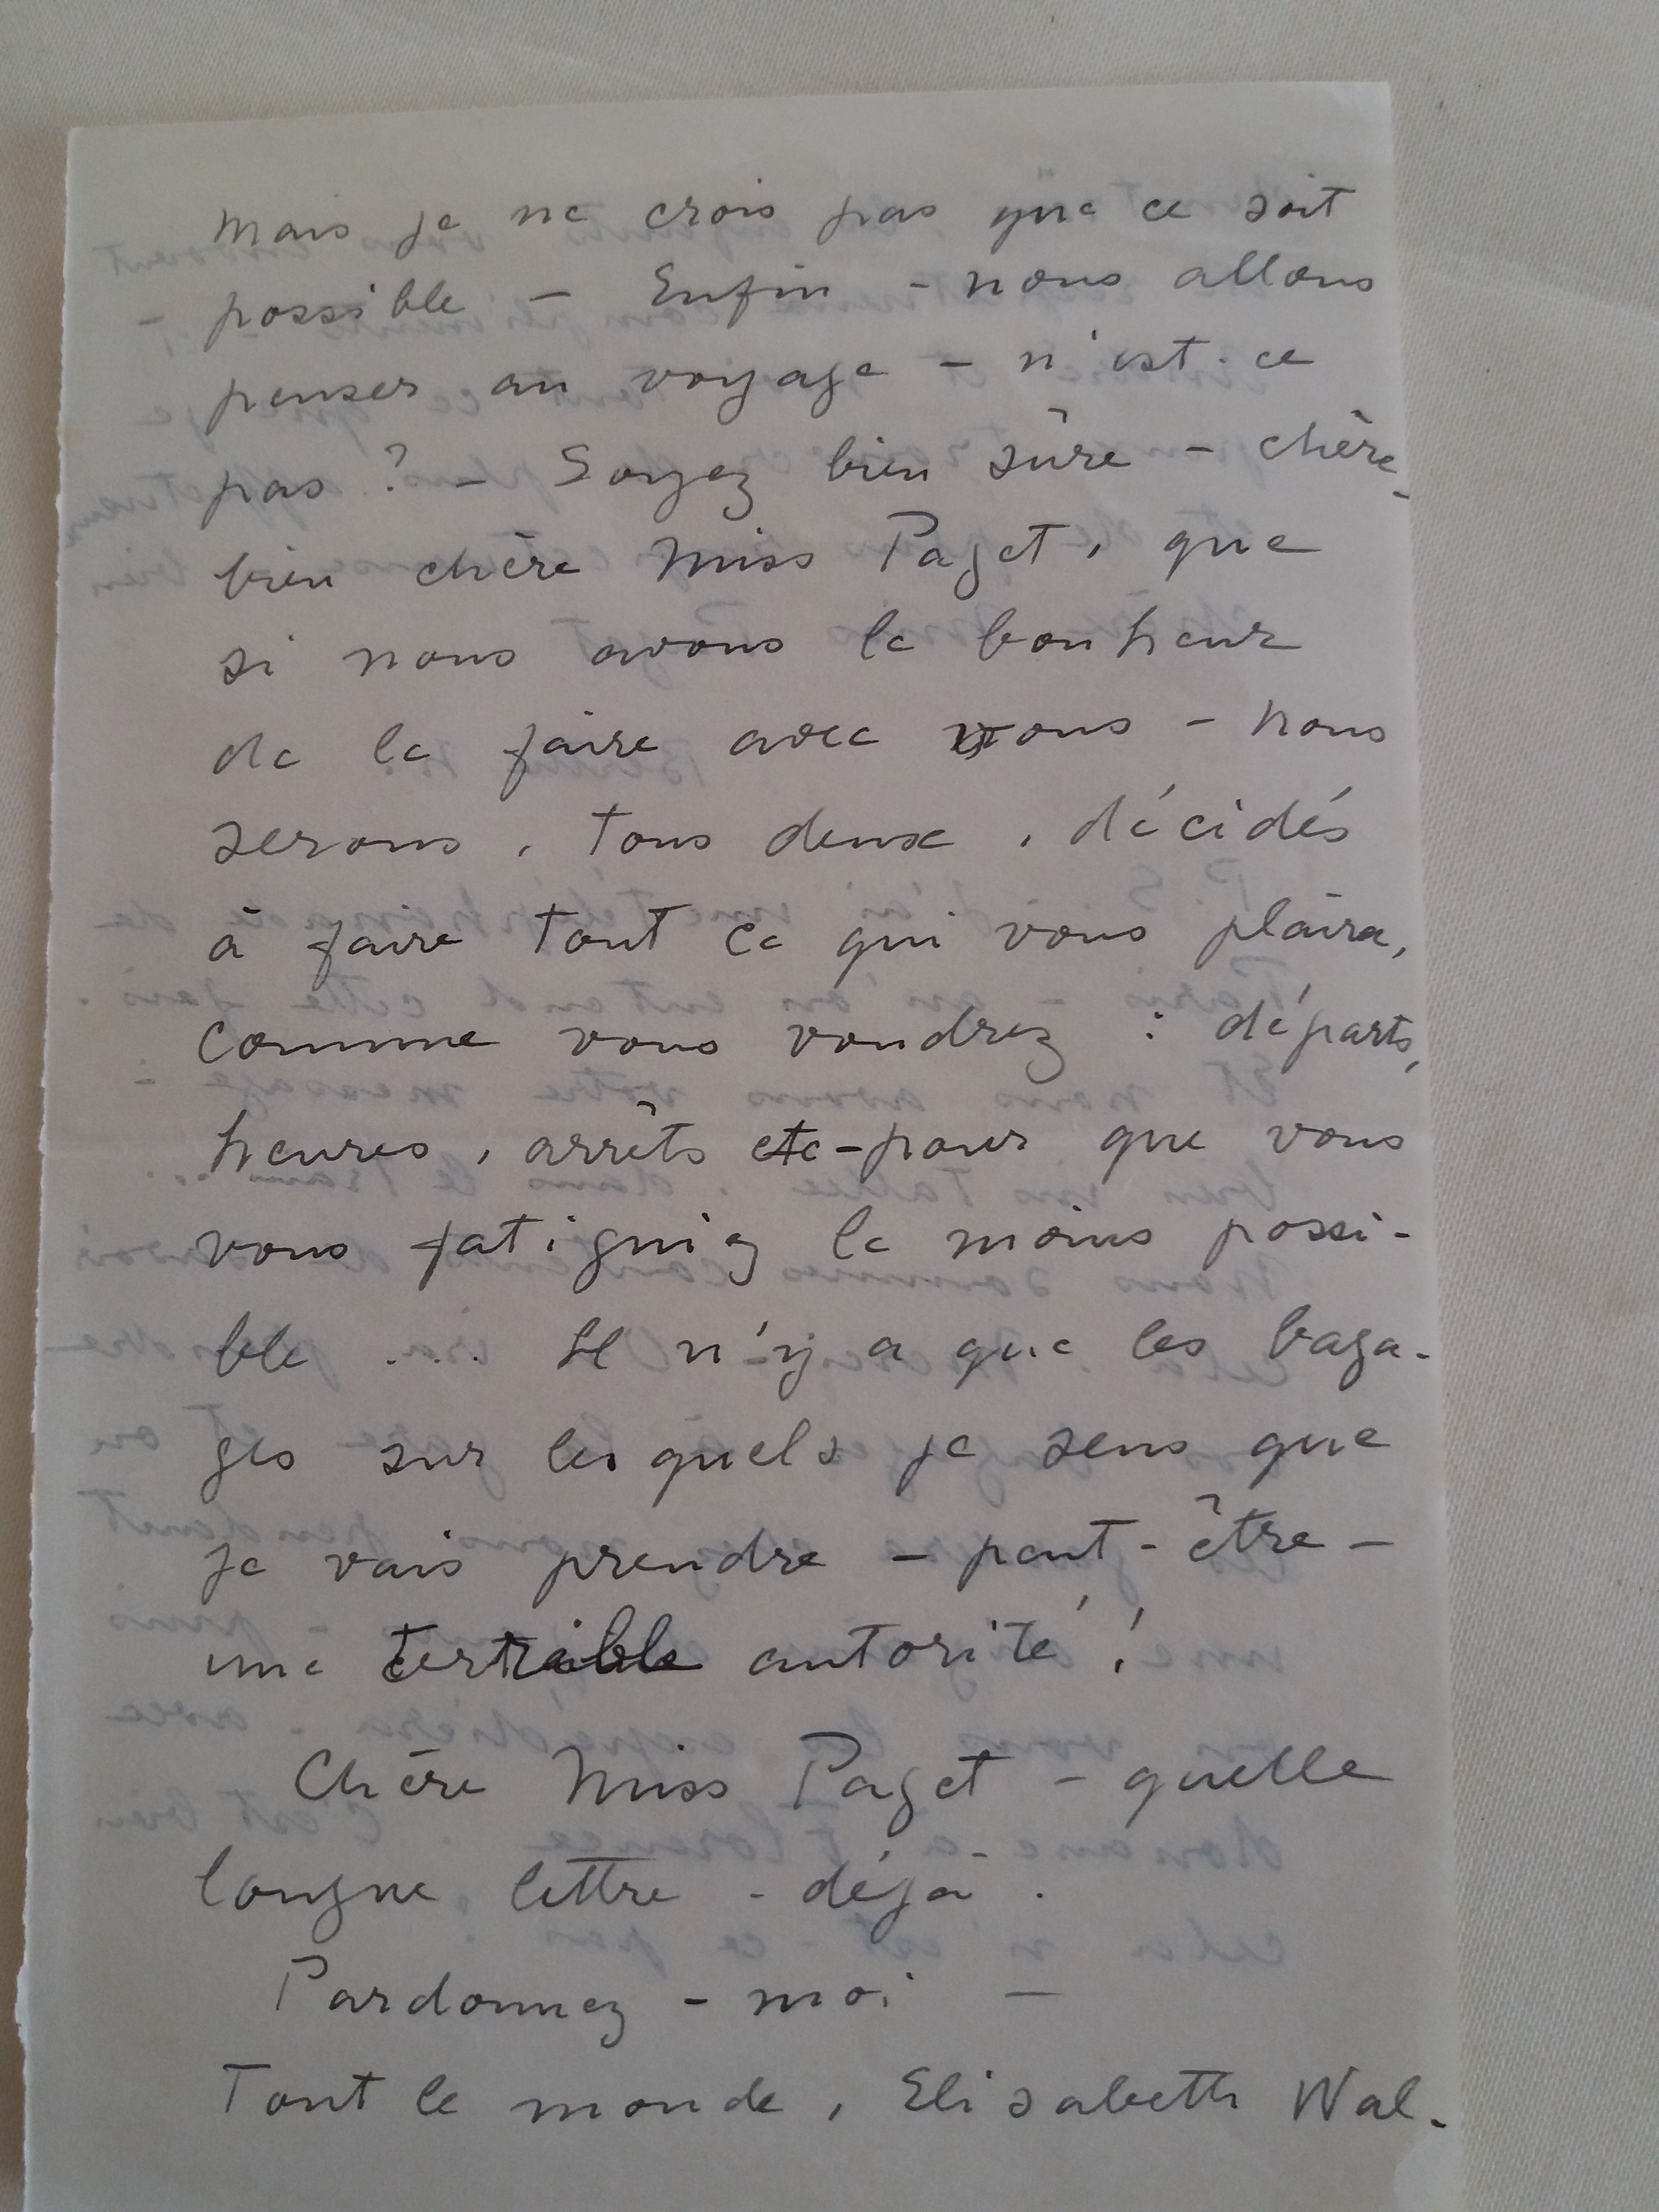 Mais je ne crois pas que ce soit
- possible - Enfin - nous allons
penser au voyage - n'est-ce
pas ? - Soyez bien sûre - chère -
bien chère Miss Paget, que
si nous avons le bonheur
de le faire avec vous - nous
serons, tous deux, décidés
à faire tout ce qui vous plaira,
comme vous voudrez : départs,
heures, arrêts etc - pour que vous
vous fatiguiez le moins possi-
ble ... Il n'y a que les baga-
ges sur lesquels je sens que
je vais prendre - peut-être -
une terrible autorité !
Chère Miss Paget - quelle
longue lettre - déjà .
Pardonnez-moi -
Tout le monde, Elisabeth Wal-